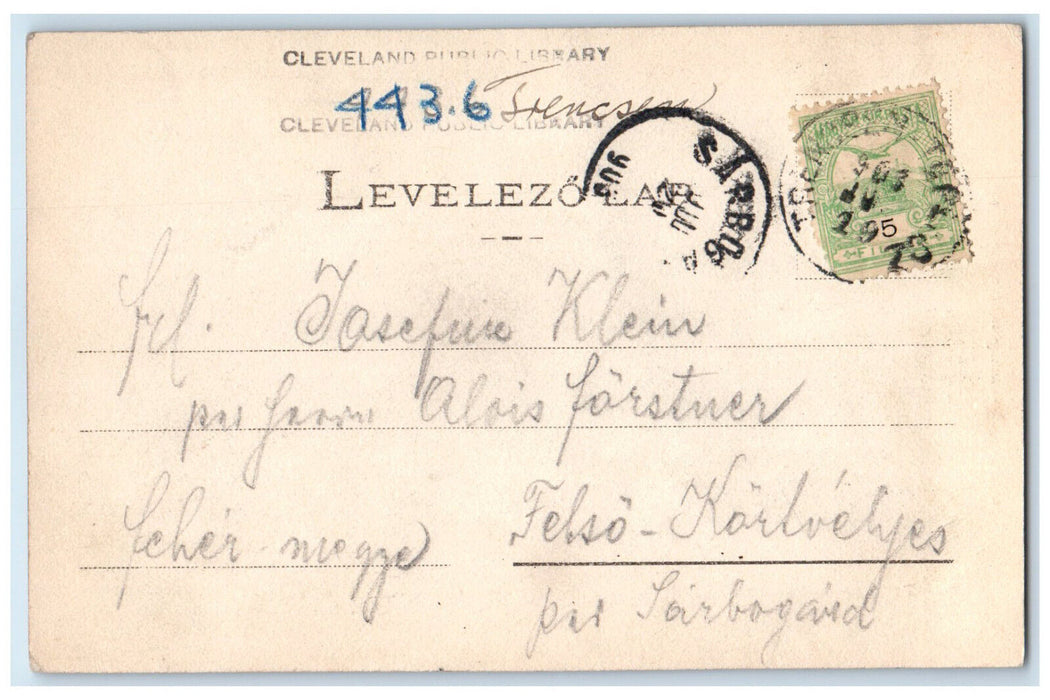 CLEVELAND PUBLIC LIBRARY
443.6 Trencsen
CLEVELAND PUBLIC LIBRARY
LEVELEZŐ-LAP
SÁRBOG
906
JUL
5
Frl. Josefine Klein
per Herrn Alois Förstner
Fehér megye
Felső-Körtvélyes
per Sárbogárd